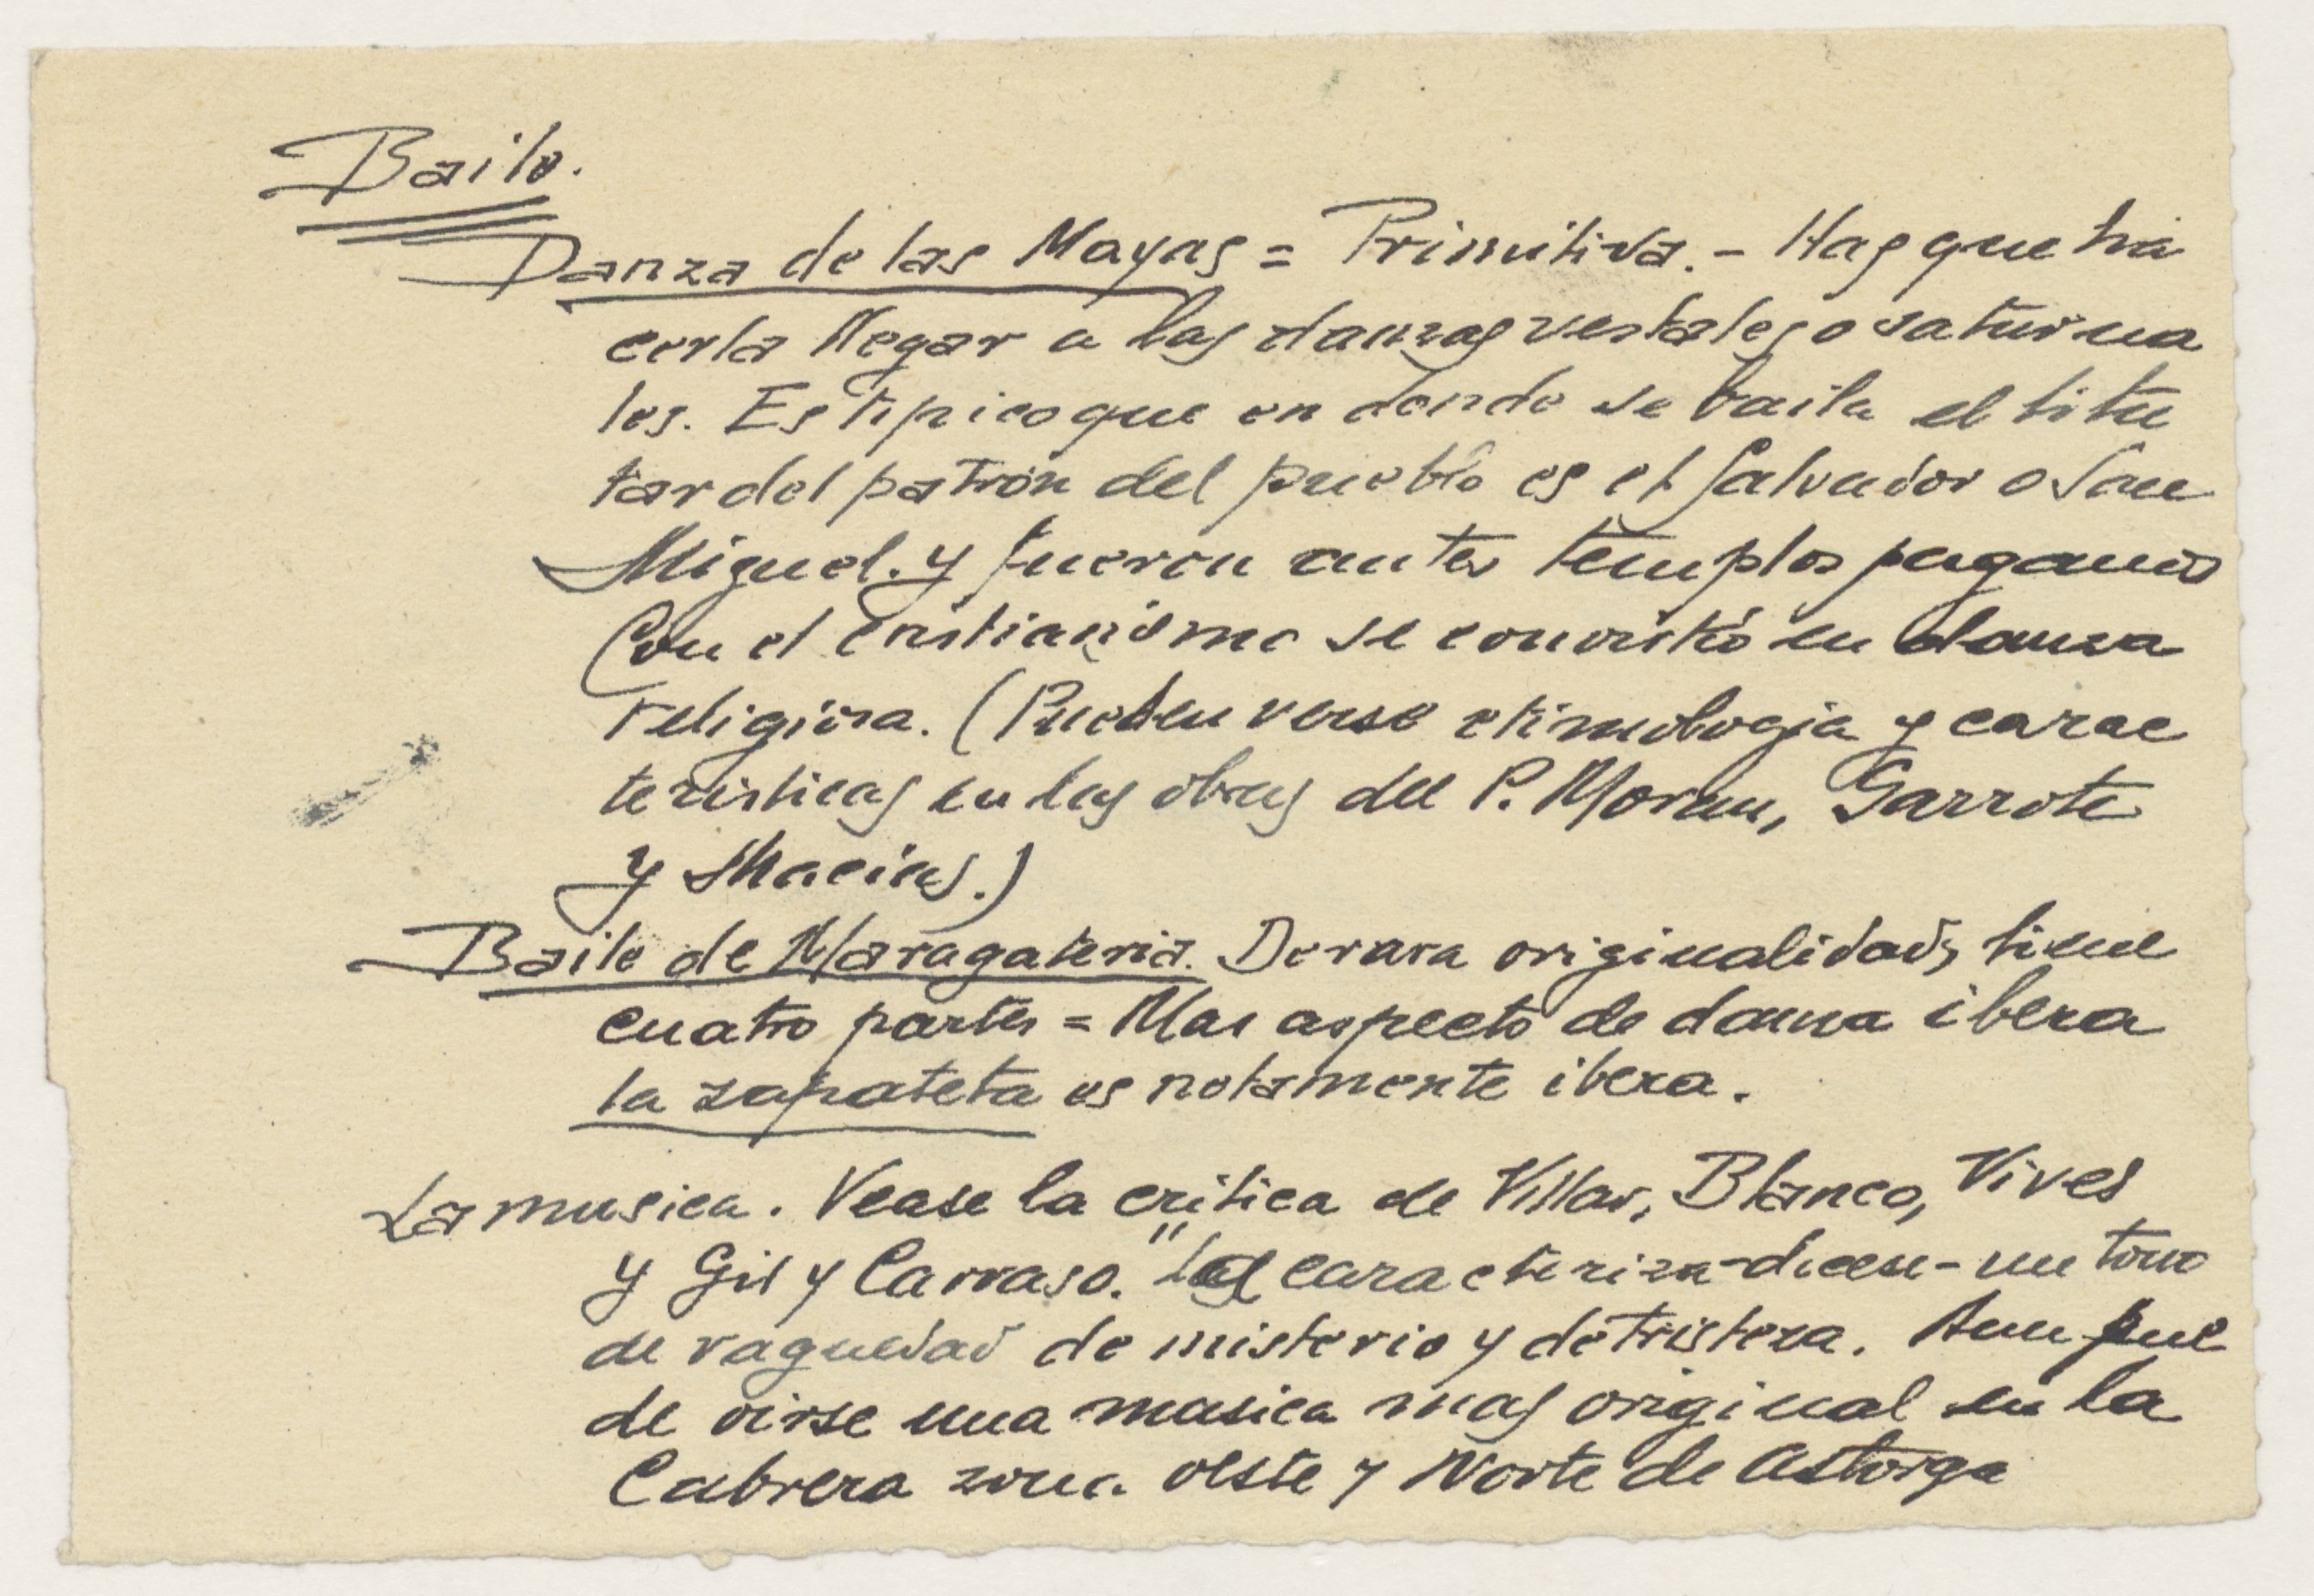 Baile.
Danza de las Mayas = Primitiva. - Hay que ha
cerla llegar a las danzas vestales o saturna
les. Es tipico que en donde se baila el titu
lar del patrón del pueblo es el Salvador o San
Miguel. y fueron antes templos paganos
Con el cristianismo se convirtió en danza
religiosa. (Pueden verse etimologia y carac
teristicas en las obras del P. Moran, Garrote
y Macias.)
Baile de Maragateria. De rara originalidad, tiene
cuatro partes = Mas aspecto de danza ibera
la zapateta es notamente ibera.
La musica. Vease la critica de Villar, Blanco, Vives
y Gil y Carraso. "Las caracteriza - dicen - un tono
de vaguedad de misterio y de tristeza. Aun pue
de oirse una musica mas original en la
Cabrera zona oeste y Norte de Astorga